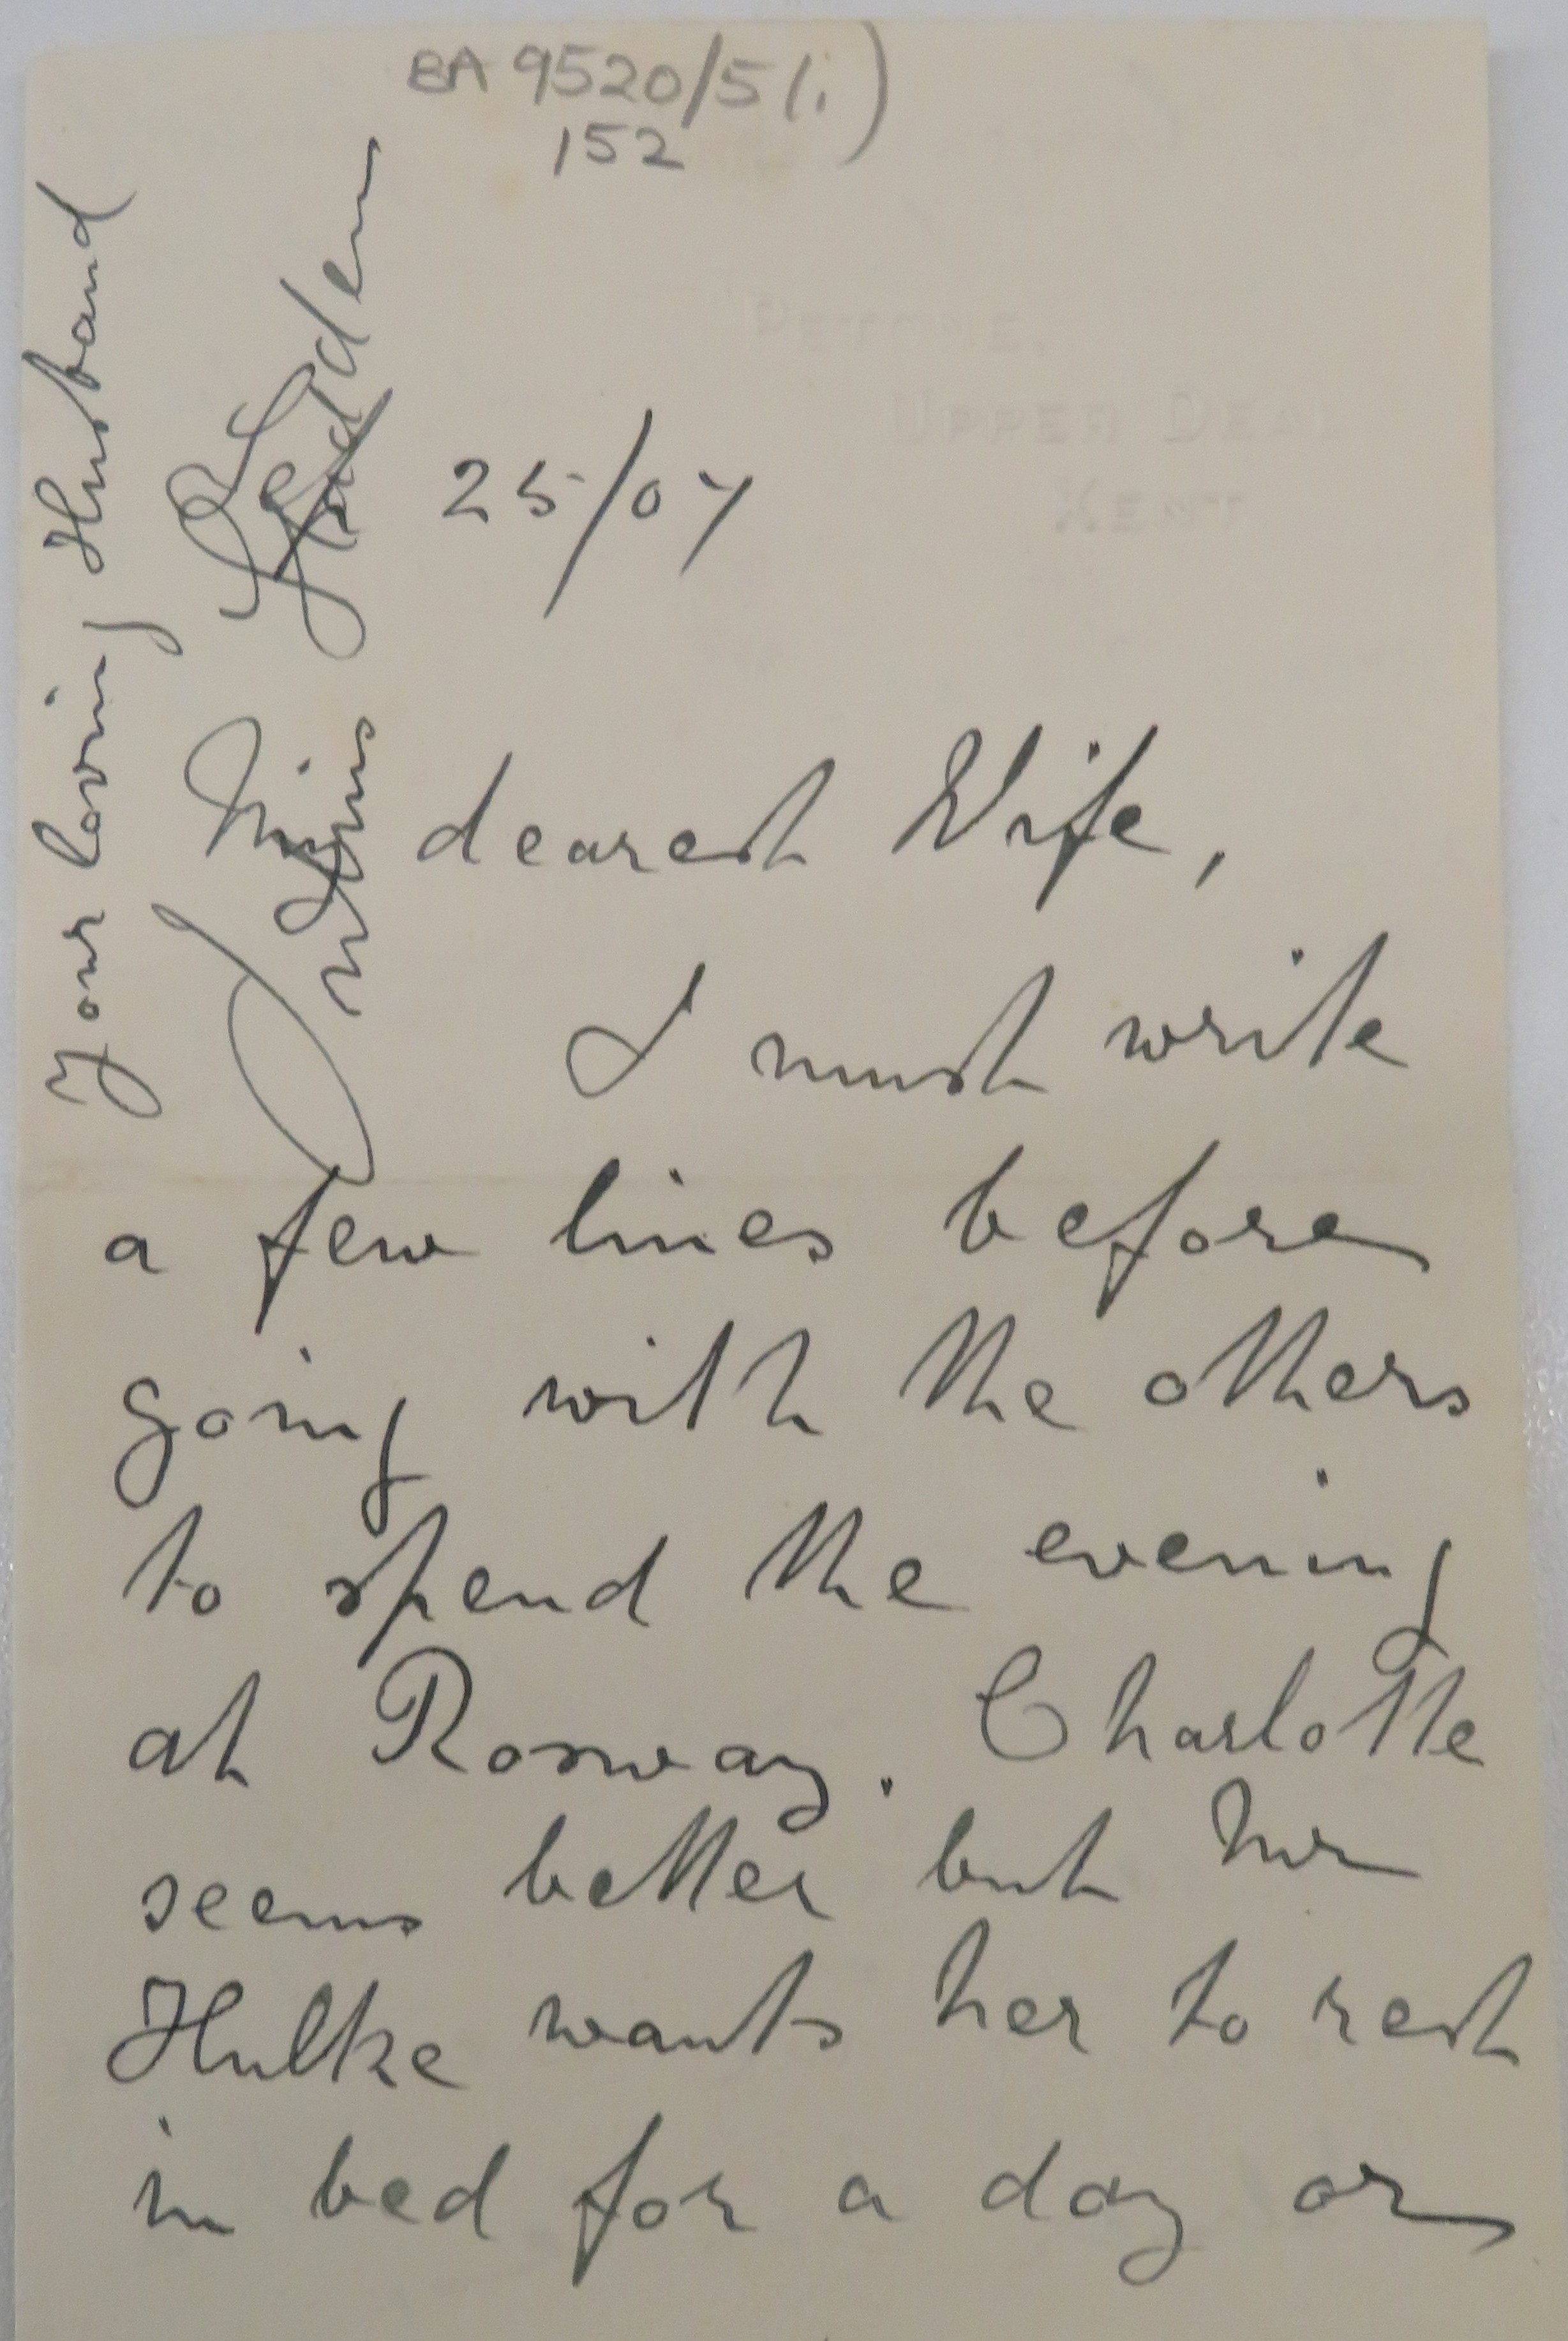 BA 9520/5(i)
152
PETONE,
UPPER DEAL
KENT
25/07
My dearest Wife,
I must write
a few lines before
going with the others
to spend the evening
at Rosway. Charlotte
seems better but Mr
Hulke wants her to rest
in bed for a day or
Your loving Husband
Julius Sladden